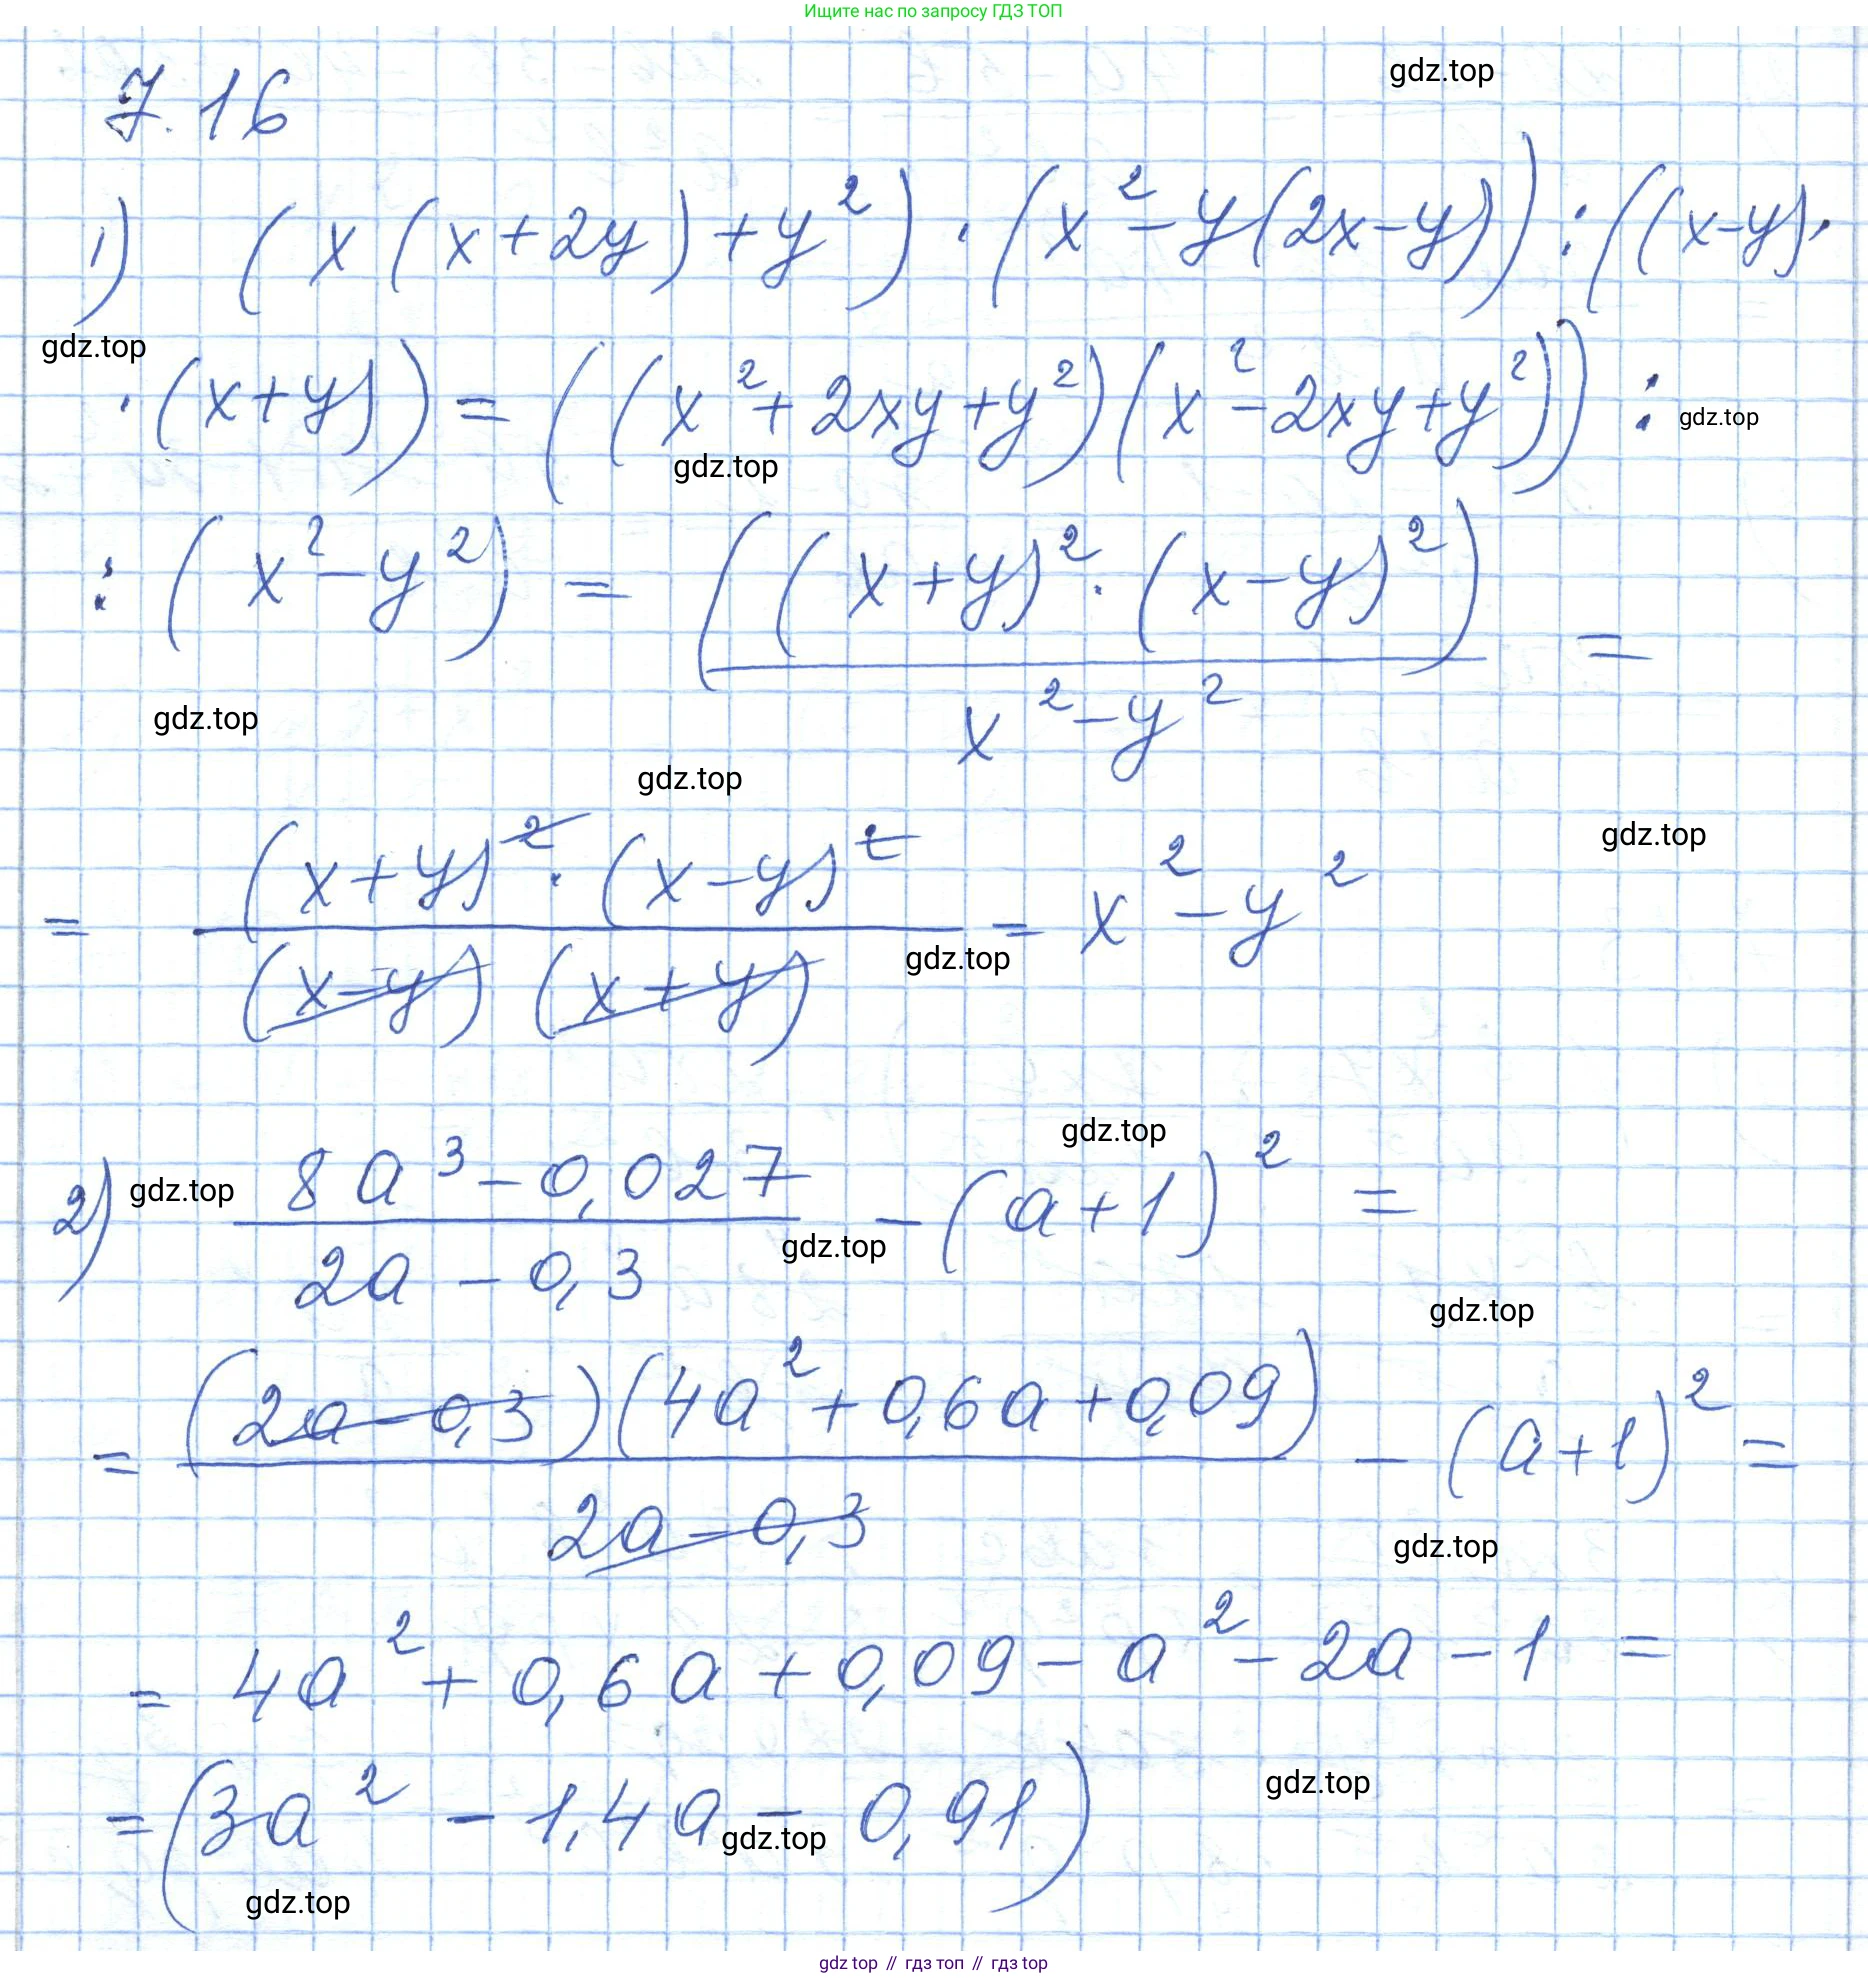 Ищите нас по запросу ГДЗ ТОП
7.16
gdz.top
1) (x(x+2y)+y²)·(x²-y(2x-y)):((x-y)·
gdz.top
·(x+y))=((x²+2xy+y²)(x²-2xy+y²)):
gdz.top
gdz.top
:(x²-y²)=((x+y)²·(x-y)²)/(x²-y²)=
gdz.top
gdz.top
gdz.top
=(x+y)²·(x-y)²/(x-y)(x+y)=x²-y²
gdz.top
gdz.top
2) (8a³-0,027)/(2a-0,3)-(a+1)²=
gdz.top
gdz.top
gdz.top
=(2a-0,3)(4a²+0,6a+0,09)/(2a-0,3)-(a+1)²=
gdz.top
=4a²+0,6a+0,09-a²-2a-1=
=(3a²-1,4a-0,91)
gdz.top
gdz.top
gdz.top
gdz top // гдз топ // гдз top